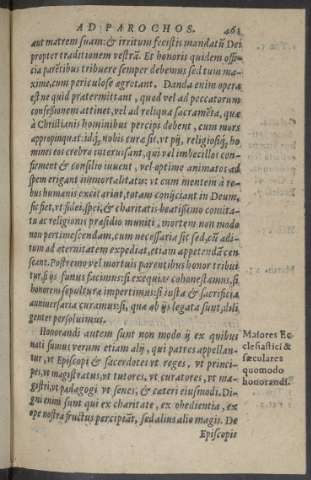 AD PAROCHOS. 461
aut matrem suam: & irritum fecistis mandatũ Dei
propter traditionem vestrã. Et honoris quidem offi-
cia parẽtibus tribuere semper debemus sed tum ma-
xime, cum periculose ægrotant. Danda enim opera
est ne quid prætermittant, quod vel ad peccatorum
confessionem attinet, vel ad reliqua sacramẽta, quæ
à Christianis hominibus percipi debent, cum mors
appropinquat: idq́, nobis curæ sit, vt pij, religiosiq́, ho-
mines eos crebro inuisant, qui vel imbecillos con-
firment & consilio iuuent, vel optime animatos ad
spem erigant immortalitatis: vt cum mentem à re-
bus humanis excitariut, totam conijciant in Deum.
sic fiet, vt fidei, spei, & charitatis beatissimo comita-
tu ac religionis præsidio muniti, mortem non modo
non pertimescendam, cum necessaria sit sed, cũ adi-
tum ad æternitatem expediat, etiam appetendã cen-
seant. Postremo vel mortuis parentibus honor tribui
tur, si ijs funus facimus: si exequias cohonestamus, si
honorem sepulturæ impertimus: si iusta & sacrificia
anniuersaria curamus: si, quæ ab ijs legata sunt, dili-
genter persoluimus.
Honorandi autem sunt non modo ij ex quibus
nati sumus verum etiam alij, qui patres appellan-
tur, vt Episcopi & sacerdotes vt reges, vt princi-
pes, vt magistratus, vt tutores, vt curatores, vt ma-
gistri, vt pædagogi vt senes, & cæteri eiusmodi. Di-
gni enim sunt qui ex charitate, ex obedientia, ex
ope nostra fructus percipiãt, sed alius alio magis. De
Episcopis
Maiores Ec-
clesiastici &
sæculares
quomodo
honorandi.